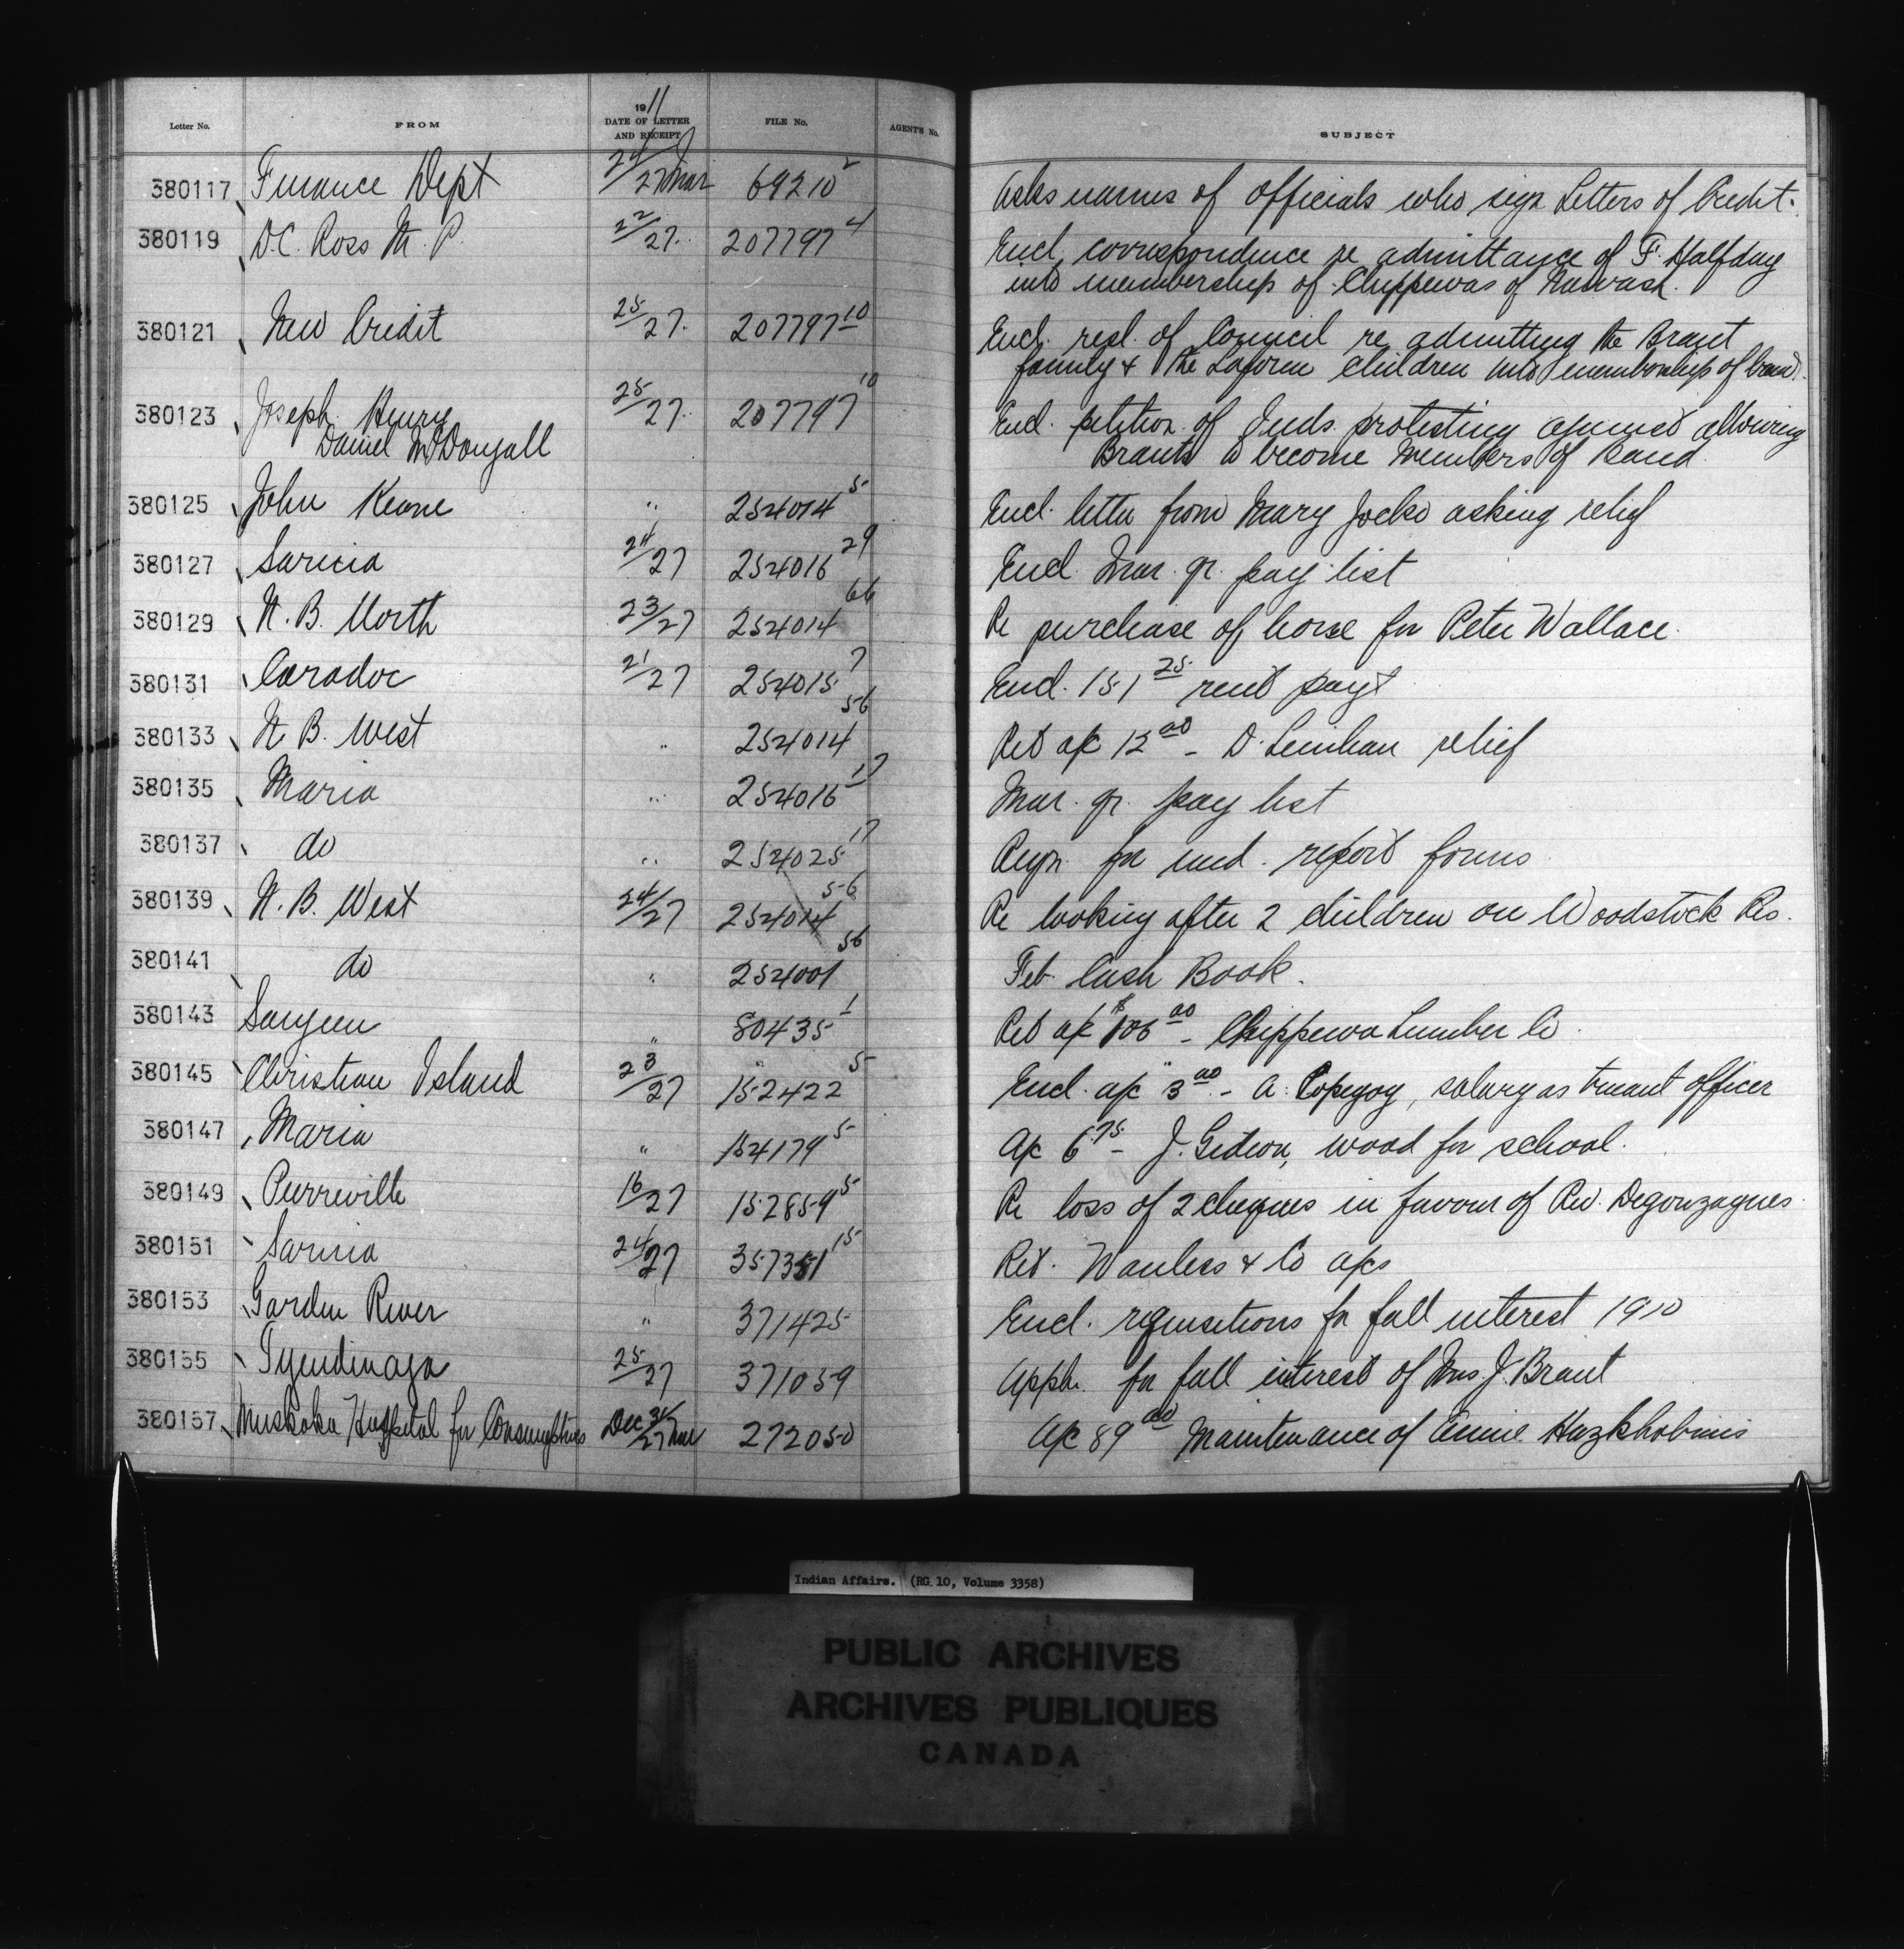 Letter No. FROM 1911 DATE OF LETTER AND RECEIPT FILE No. AGENT'S No. SUBJECT
380117 Finance Dept 24/27 Mar 69210² Asks names of officials who sign Letters of Credit.
380119 D.C. Ross M.P. 22/27. 207797⁴ Encl. correspondence re admittance of F. Halfday
into membership of Chippewas of Nawash.
380121 New Credit 25/27. 207797¹⁰ Encl. resl. of Council re admitting the Brant
family & the Laform children into membership of band.
380123 Joseph Henry 25/27. 207797¹⁰ Encl. petition of Inds. protesting against allowing
Daniel McDougall Brants to become members of Band.
380125 John Keane " 254014⁵ Encl. letter from Mary Jocko asking relief
380127 Sarnia 24/27 254016²⁹ Encl. Mar. qr. pay list
380129 N.B. North 23/27 254014⁶⁶ Re purchase of horse for Peter Wallace.
380131 Caradoc 21/27 254015⁷ Encl. 151²⁵ rent payt
380133 N.B. West " 254014⁵⁶ Ret a/c 12⁰⁰ - D. Lenihan relief
380135 Maria " 254016¹⁷ Mar. qr. pay list
380137 do " 254025¹⁷ Reqn. for med. report forms
380139 N.B. West 24/27 254014⁵⁶ Re looking after 2 children on Woodstock Res.
380141 do " 254001⁵⁶ Feb. Cash Book.
380143 Saugeen " 80435¹ Ret a/c $106⁰⁰ - Chippewa Lumber Co.
380145 Christian Island 23/27 152422⁵ Encl. a/c 3⁰⁰ - A. Copegog, salary as truant officer
380147 Maria " 154179⁵ A/c 6⁷⁵ - J. Gideon, wood for school.
380149 Pierreville 16/27 152859⁵ Re loss of 2 cheques in favour of Rev. Degonzagues.
380151 Sarnia 24/27 357351¹⁵ Ret. Wanless & Co a/cs
380153 Garden River " 371425 Encl. requisitions for fall interest 1910
380155 Tyendinaga 25/27 371059 Appln. for fall interest of Mrs. J. Brant
380157 Muskoka Hospital for Consumptives Dec 31/27 Mar 272050 A/c 89⁰⁰ Maintenance of Annie
Indian Affairs. (RG 10, Volume 3358)
PUBLIC ARCHIVES
ARCHIVES PUBLIQUES
CANADA